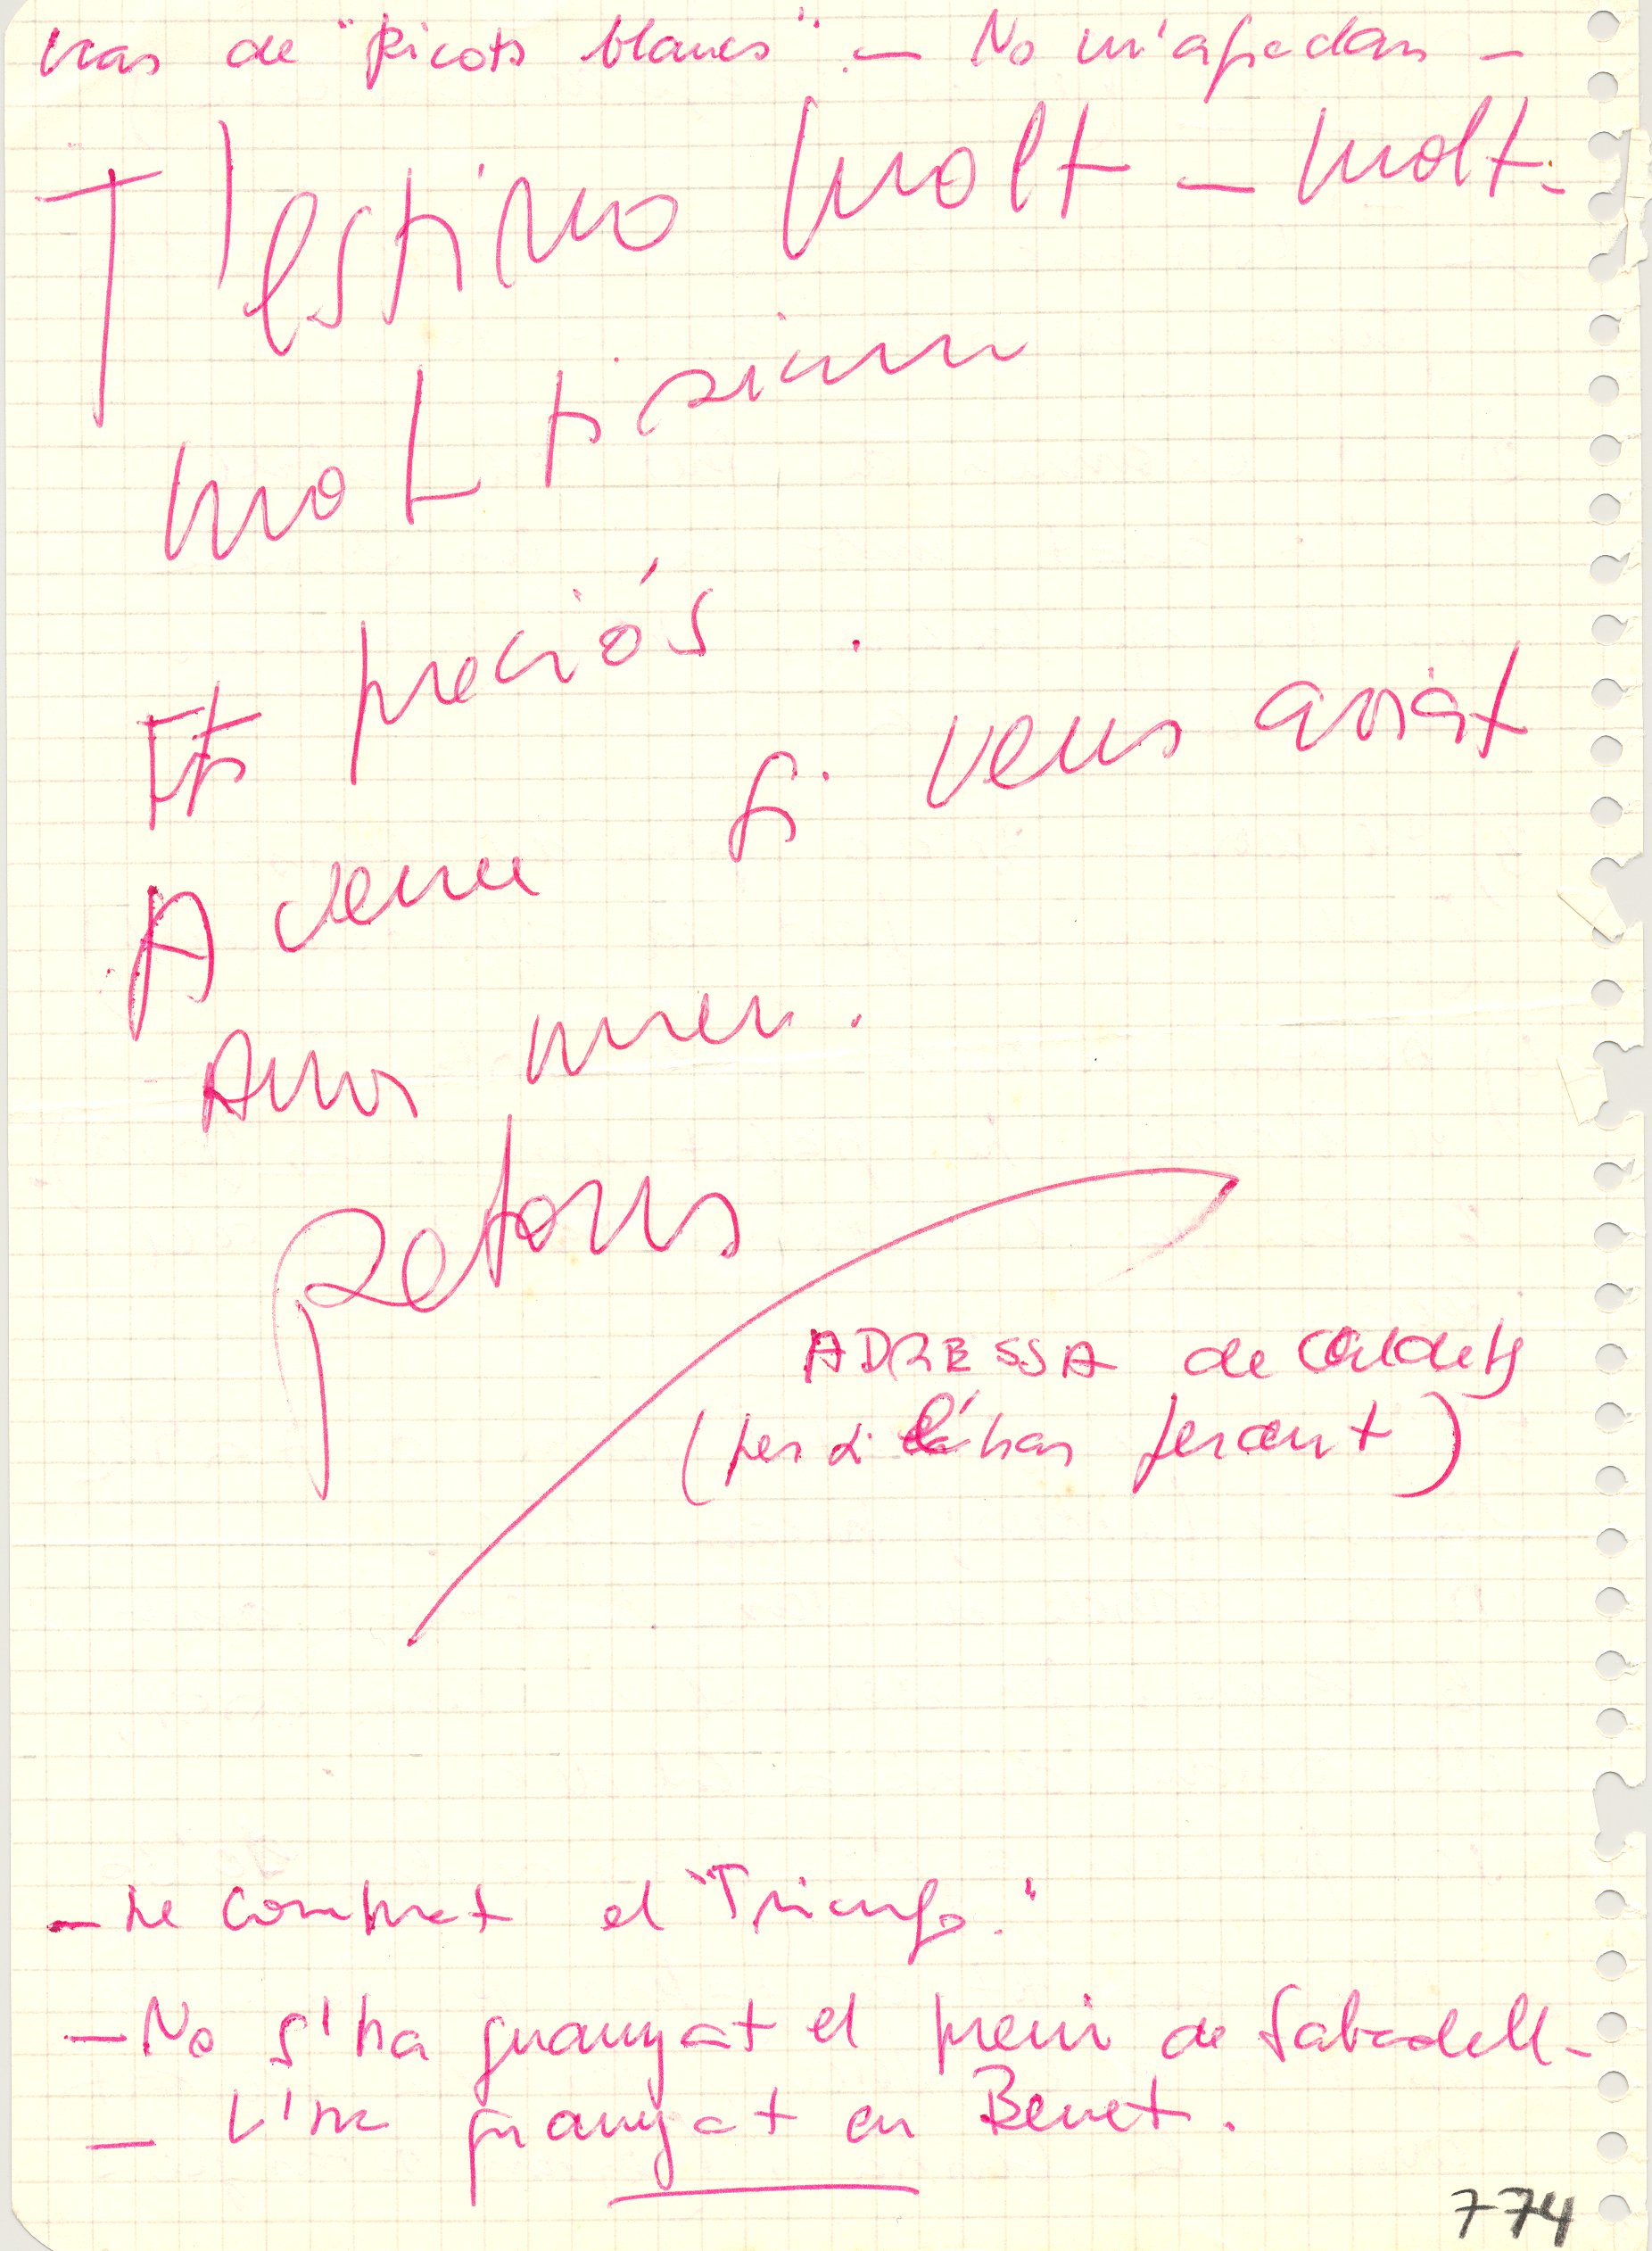 de "picots blancs" — No m'agradan —
T'estimo molt — molt.
moltissim
Ets preciós.
A deu si vens aviat
Amor meu.
Petons
ADRESSA de Caldetes
(per si l'has perdut)
— he comprat el "Triunfo."
— No s'ha guanyat el premi de Sabadell —
— L'ha guanyat en Benet.
774